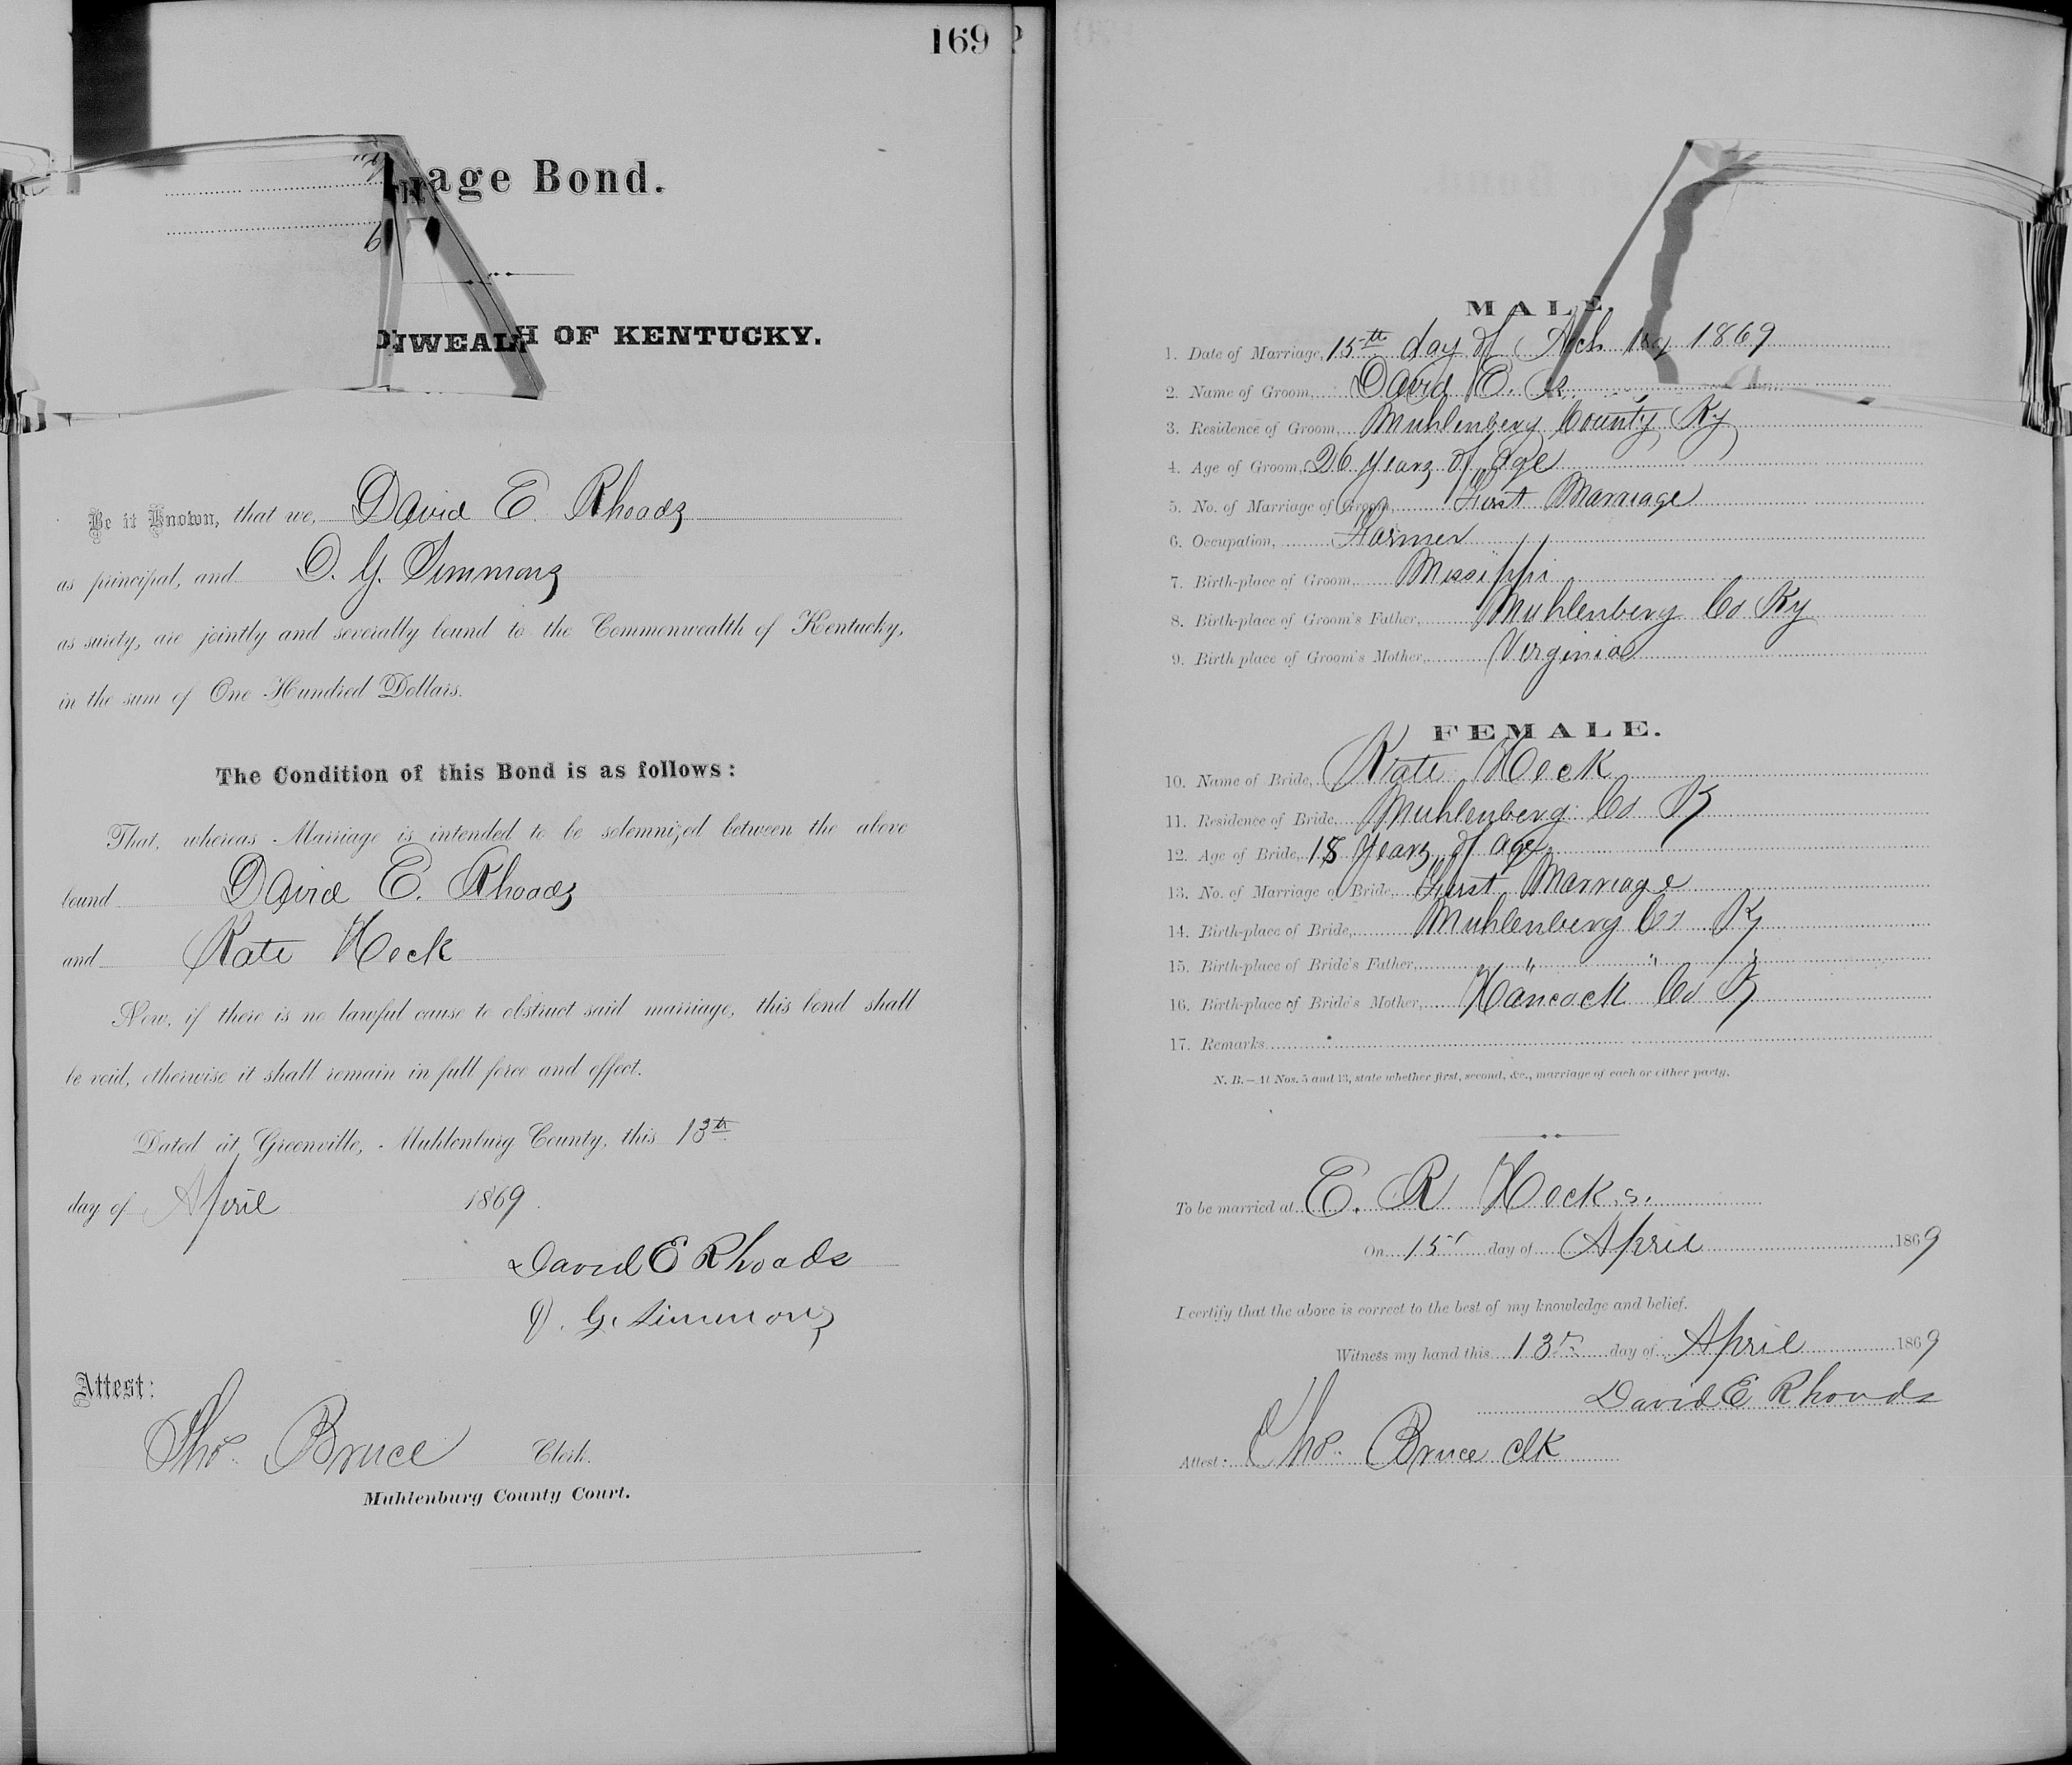 169
age Bond.
OF KENTUCKY.
Be it Known, that we, David E. Rhoads
as principal, and D. G. Simmons
as surety, are jointly and severally bound to the Commonwealth of Kentucky,
in the sum of One Hundred Dollars.
The Condition of this Bond is as follows:
That, whereas Marriage is intended to be solemnized between the above
bound David E. Rhoads
and Kate Hock
Now, if there is no lawful cause to obstruct said marriage, this bond shall
be void, otherwise it shall remain in full force and effect.
Dated at Greenville, Muhlenburg County, this 13th
day of April 1869.
David E Rhoads
D. G. Simmons
Attest:
Thos. Bruce Clerk.
Muhlenburg County Court.
MALE.
1. Date of Marriage, 15th day of 1869
2. Name of Groom, David E.
3. Residence of Groom, Muhlenberg County Ky
4. Age of Groom, 26 Years of age
5. No. of Marriage of Groom, First Marriage
6. Occupation, Farmer
7. Birth-place of Groom, Missippi
8. Birth-place of Groom's Father, Muhlenberg Co Ky
9. Birth place of Groom's Mother, Virginia
FEMALE.
10. Name of Bride, Kate Hock
11. Residence of Bride, Muhlenberg Co Ky
12. Age of Bride, 18 Years of age
13. No. of Marriage of Bride, First Marriage
14. Birth-place of Bride, Muhlenberg Co Ky
15. Birth-place of Bride's Father, " " "
16. Birth-place of Bride's Mother, Hancock Co Ky
17. Remarks
N. B.—At Nos. 5 and 13, state whether first, second, &c., marriage of each or either party.
To be married at E. R Hock,s.
On 15th day of April 1869
I certify that the above is correct to the best of my knowledge and belief.
Witness my hand this 13th day of April 1869
David E Rhoads
Attest: Thos. Bruce Clk